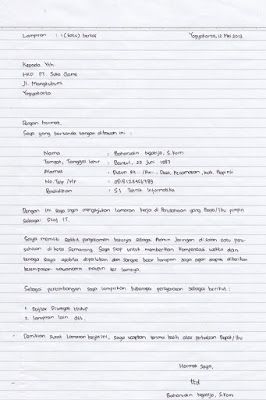 Lampiran : 1 (satu) berkas Yogyakarta, 12 Mei 2013
Kepada Yth.
HRD PT. Suka Game
Jl. Mangkubumi
Yogyakarta
Dengan hormat,
Saya yang bertanda tangan dibawah ini :
Nama : Baharudin Ngatejo, S.Kom
Tempat, Tanggal lahir : Bantul, 23 Juni 1987
Alamat : Dusun
No. Telp / Hp :
Pendidikan : S1 Teknik Informatika
Dengan ini saya ingin mengajukan lamaran kerja di Perusahaan yang Bapak/Ibu pimpin
sebagai Staf IT.
Saya memiliki sedikit pengalaman bekerja sebagai Admin Jaringan di salah satu peru-
sahaan di kota Semarang. Saya siap untuk memberikan kompensasi waktu dan
tenaga saya apabila diperlukan dan sangat besar harapan saya agar dapat diberikan
kesempatan wawancara maupun tes lainnya.
Sebagai pertimbangan saya lampirkan beberapa persyaratan sebagai berikut :
1. Daftar Riwayat Hidup
2. lampiran lain dst.
Demikian surat lamaran kerja ini, saya ucapkan terima kasih atas perhatian Bapak/Ibu
Hormat Saya,
ttd
Baharudin Ngatejo, S.Kom